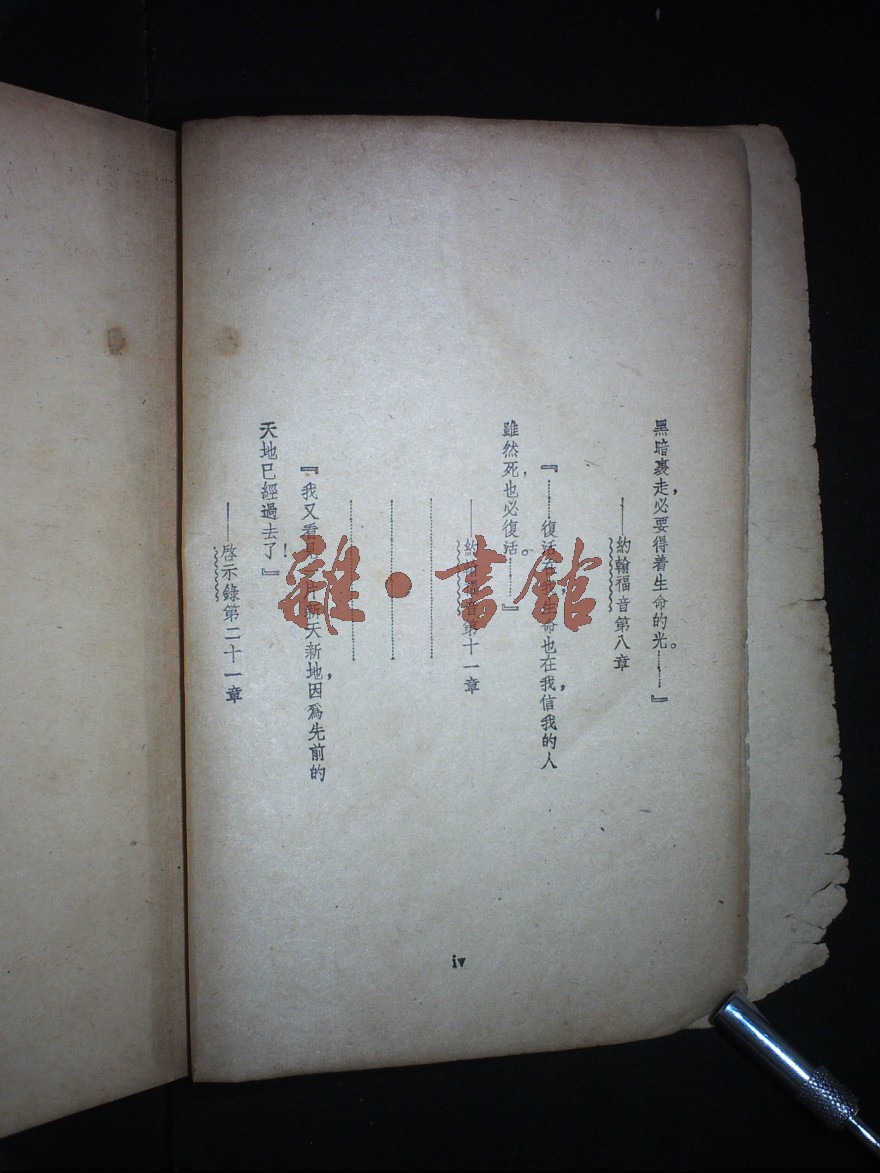 黑暗裏走，必要得着生命的光。……』
——約翰福音第八章
『……復活在我，生命也在我，信我的人
雖然死，也必復活。……』
——約翰福音第十一章
………………
………………
………………
『我又看見一片新天新地，因爲先前的
天地已經過去了！』
——啓示錄第二十一章
iv
雜·書館